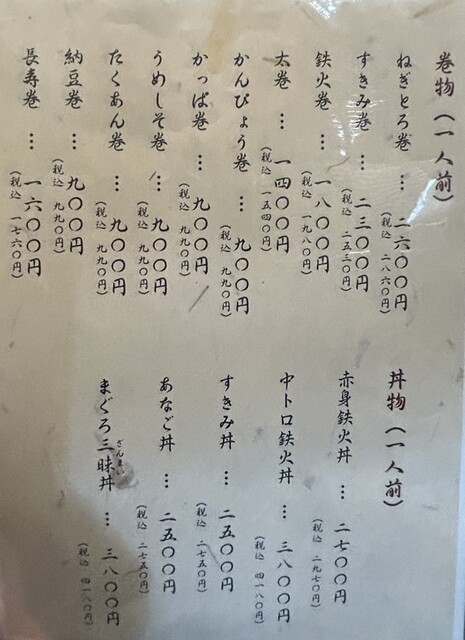 巻物(一人前)
ねぎとろ巻 … 二六〇〇円
(税込 二八六〇円)
すきみ巻 … 二三〇〇円
(税込 二五三〇円)
鉄火巻 … 一八〇〇円
(税込 一九八〇円)
太巻 … 一四〇〇円
(税込 一五四〇円)
かんぴょう巻 … 九〇〇円
(税込 九九〇円)
かっぱ巻 … 九〇〇円
(税込 九九〇円)
うめしそ巻 … 九〇〇円
(税込 九九〇円)
たくあん巻 … 九〇〇円
(税込 九九〇円)
納豆巻 … 九〇〇円
(税込 九九〇円)
長寿巻 … 一六〇〇円
(税込 一七六〇円)
丼物(一人前)
赤身鉄火丼 … 二七〇〇円
(税込 二九七〇円)
中トロ鉄火丼 … 三八〇〇円
(税込 四一八〇円)
すきみ丼 … 二五〇〇円
(税込 二七五〇円)
あなご丼 … 二五〇〇円
(税込 二七五〇円)
まぐろ三昧丼 … 三八〇〇円
ざんまい
(税込 四一八〇円)